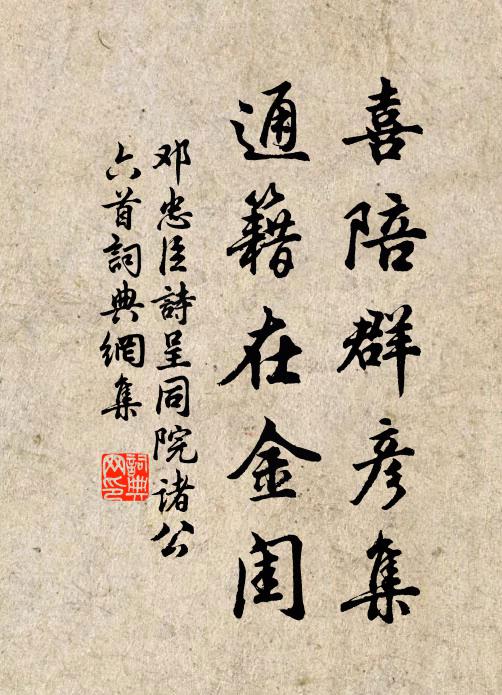 喜陪群彦集
通籍在金闺
邓忠臣詩呈同院诸公
六首詞典網集
詞典
网印